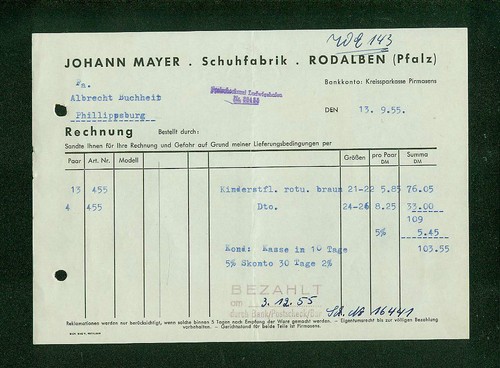 WE 143
JOHANN MAYER . Schuhfabrik . RODALBEN (Pfalz)
Fa.
Albrecht Buchheit
Phillippsburg
Bankkonto: Kreissparkasse Pirmasens
Postscheckamt Ludwigshafen
DEN 13.9.55.
Rechnung Bestellt durch:
Sandte Ihnen für Ihre Rechnung und Gefahr auf Grund meiner Lieferungsbedingungen per
Paar Art. Nr. Modell Größen pro Paar DM Summa DM
13 455 Kinderstfl. rotu. braun 21-22 5.85 76.05
4 455 Dto. 24-26 8.25 33.00
109
5% 5.45
Kond: Kasse in 10 Tage 103.55
5% Skonto 30 Tage 2%
BEZAHLT
am 3.12.55
durch Bank/Postscheck/Bar
Sch. Nr 16441
Reklamationen werden nur berücksichtigt, wenn solche binnen 5 Tagen nach Empfang der Ware gemacht werden. - Eigentumsrecht bis zur völligen Bezahlung
vorbehalten. - Gerichtsstand für beide Teile ist Pirmasens.